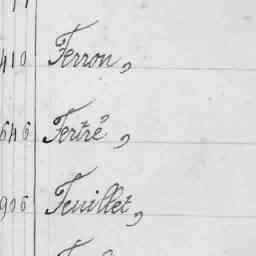 410 Ferron,
646 Fertré,
906 Feuillet,